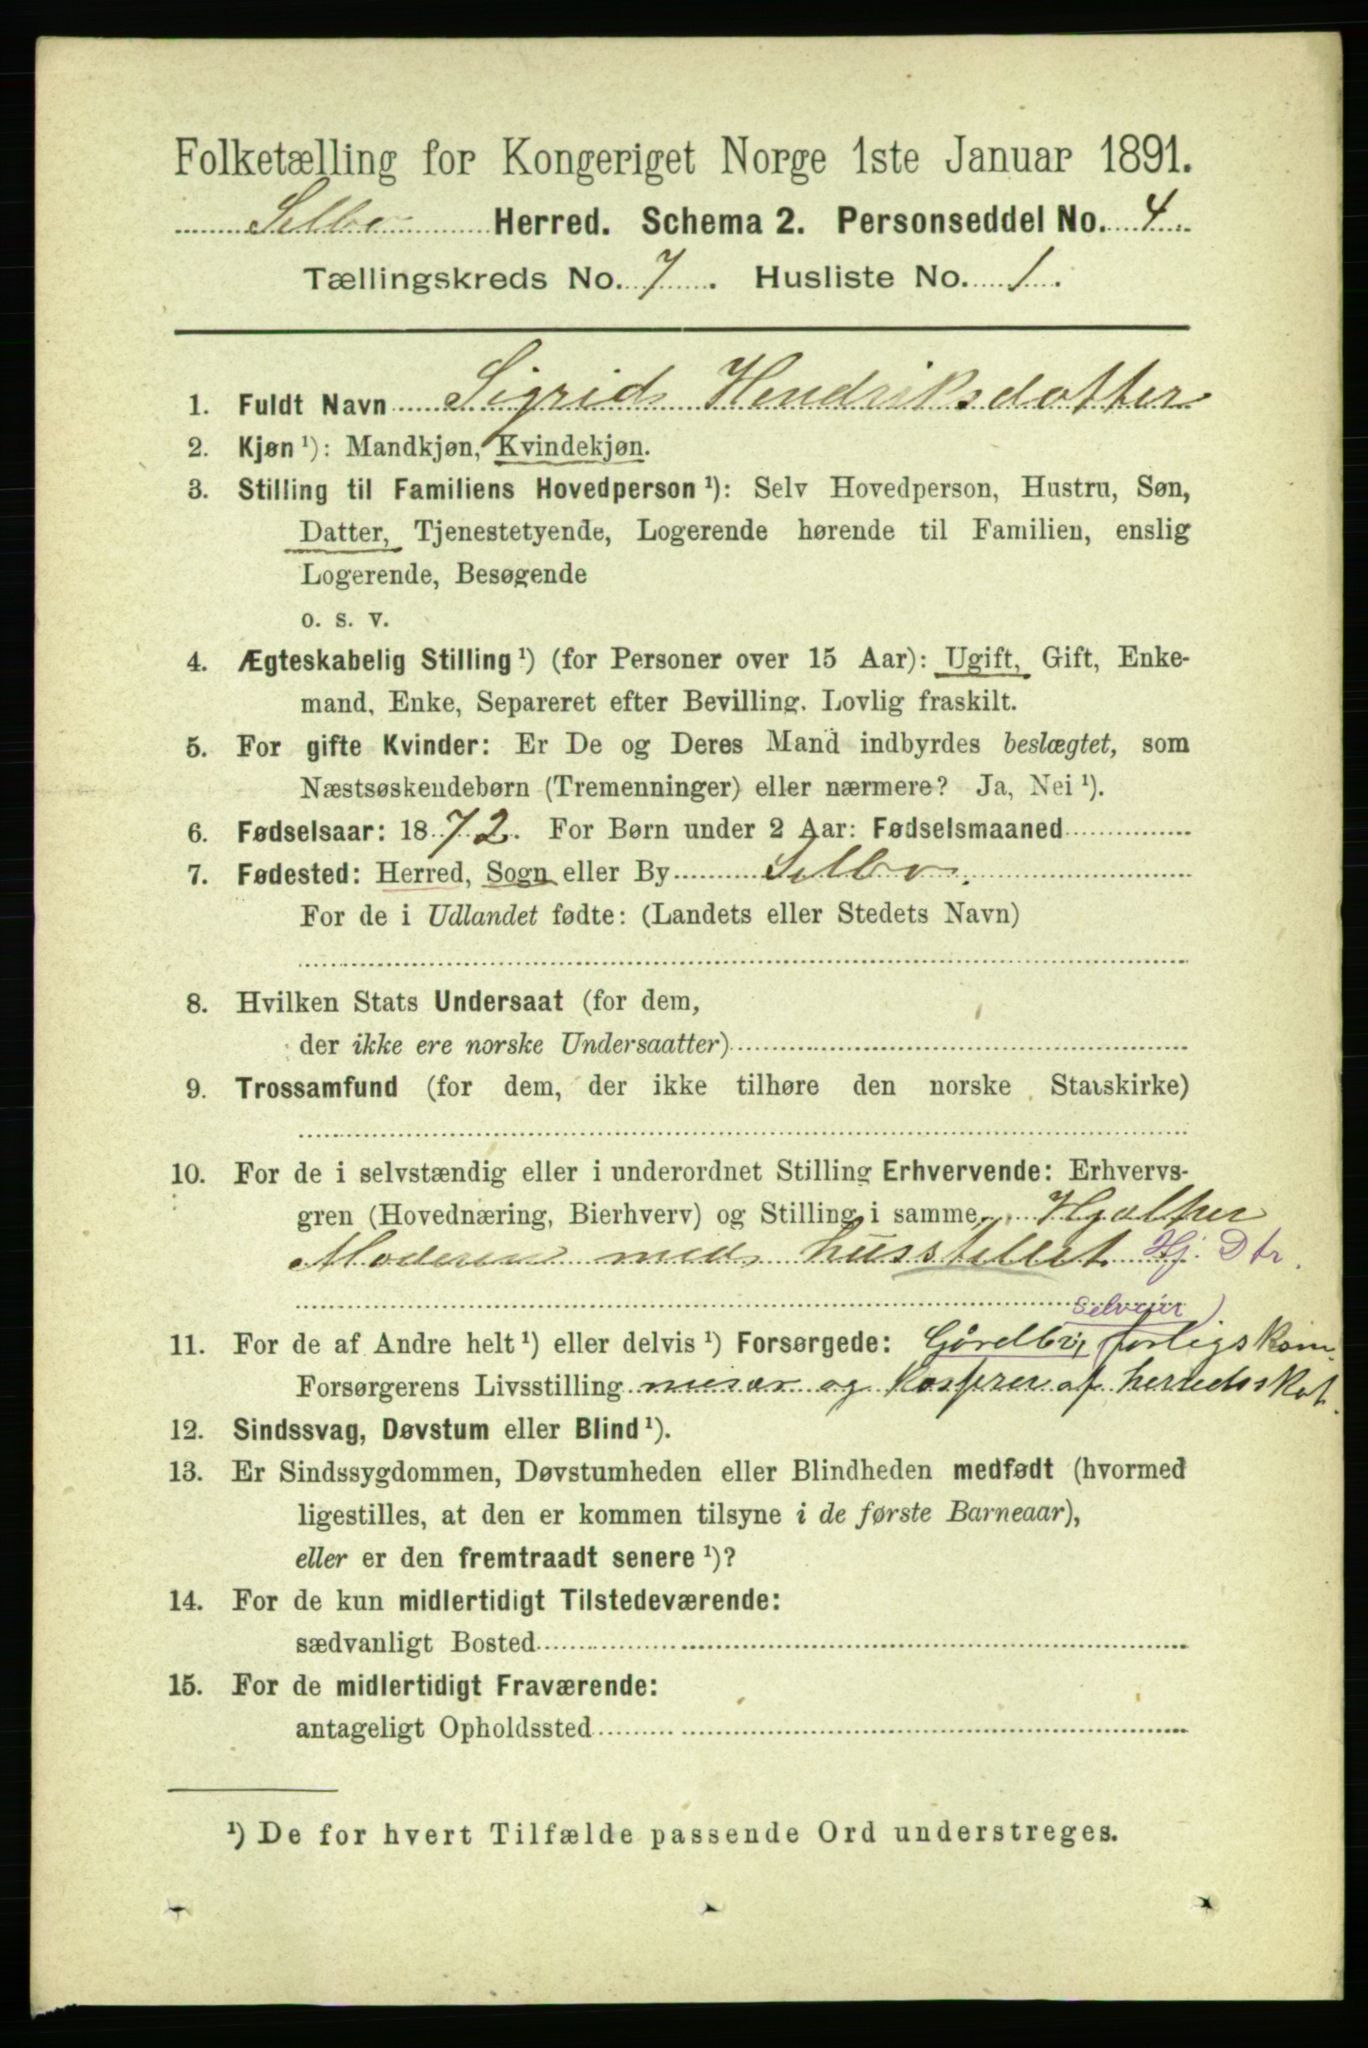 Folketælling for Kongeriget Norge 1ste Januar 1891.
Selbo Herred. Schema 2. Personseddel No. 4
Tællingskreds No. 7. Husliste No. 1.
1. Fuldt Navn Sigrid Hendriksdatter
2. Kjøn ¹): Mandkjøn, Kvindekjøn.
3. Stilling til Familiens Hovedperson ¹): Selv Hovedperson, Hustru, Søn,
Datter, Tjenestetyende, Logerende hørende til Familien, enslig
Logerende, Besøgende
o. s. v.
4. Ægteskabelig Stilling ¹) (for Personer over 15 Aar): Ugift, Gift, Enke-
mand, Enke, Separeret efter Bevilling. Lovlig fraskilt.
5. For gifte Kvinder: Er De og Deres Mand indbyrdes beslægtet, som
Næstsøskendebørn (Tremenninger) eller nærmere? Ja, Nei ¹).
6. Fødselsaar: 1872. For Børn under 2 Aar: Fødselsmaaned
7. Fødested: Herred, Sogn eller By Selbo.
For de i Udlandet fødte: (Landets eller Stedets Navn)
8. Hvilken Stats Undersaat (for dem,
der ikke ere norske Undersaatter)
9. Trossamfund (for dem, der ikke tilhøre den norske Statskirke)
10. For de i selvstændig eller i underordnet Stilling Erhvervende: Erhvervs-
gren (Hovednæring, Bierhverv) og Stilling i samme Hjælper
Moderen med husstellet. Hj. Dtr.
Selveier
11. For de af Andre helt ¹) eller delvis ¹) Forsørgede: Gårdbr, forligskom.
Forsørgerens Livsstilling misær og Kasserer af herredsskat.
12. Sindssvag, Døvstum eller Blind ¹).
13. Er Sindssygdommen, Døvstumheden eller Blindheden medfødt (hvormed
ligestilles, at den er kommen tilsyne i de første Barneaar),
eller er den fremtraadt senere ¹)?
14. For de kun midlertidigt Tilstedeværende:
sædvanligt Bosted
15. For de midlertidigt Fraværende:
antageligt Opholdssted
¹) De for hvert Tilfælde passende Ord understreges.